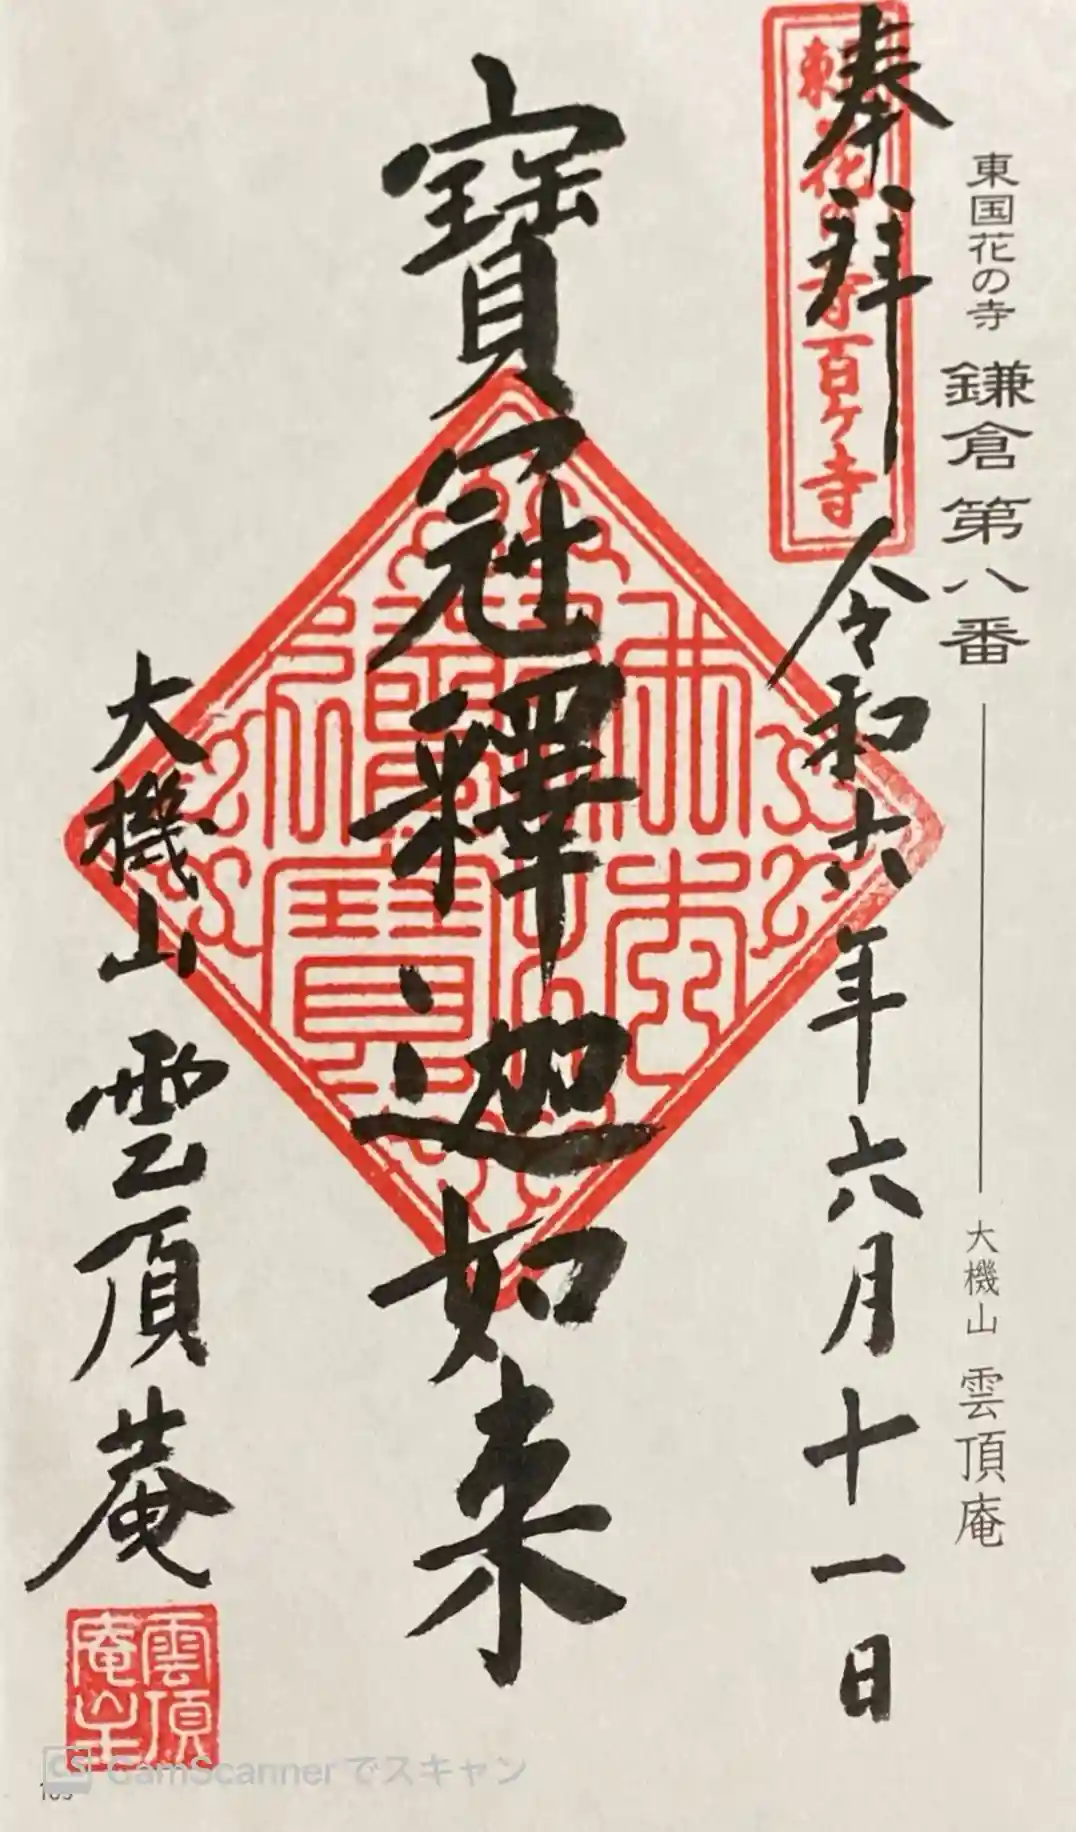 東国花の寺 鎌倉第八番 大機山 雲頂庵
奉拝 令和六年六月十一日
花の寺百ヶ寺
寶冠釋迦如来
大機山雲頂菴
雲頂
庵
CamScannerでスキャン